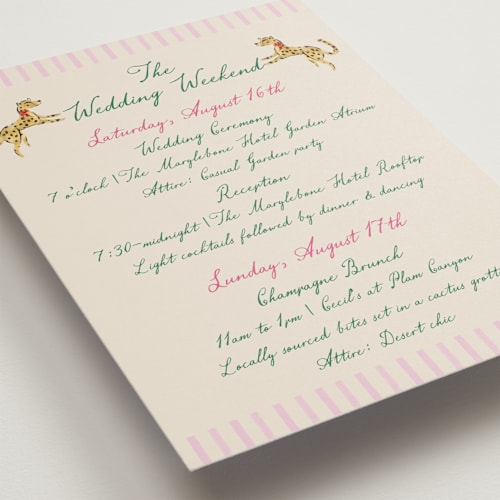 The
Wedding Weekend
Saturday, August 16th
Wedding Ceremony
7 o'clock \ The Marylebone Hotel Garden Atrium
Attire: Casual Garden party
Reception
7:30-midnight \ The Marylebone Hotel Rooftop
Light cocktails followed by dinner & dancing
Sunday, August 17th
Champagne Brunch
11am to 1pm \ Cecil's at Plam Canyon
Locally sourced bites set in a cactus grott
Attire: Desert chic